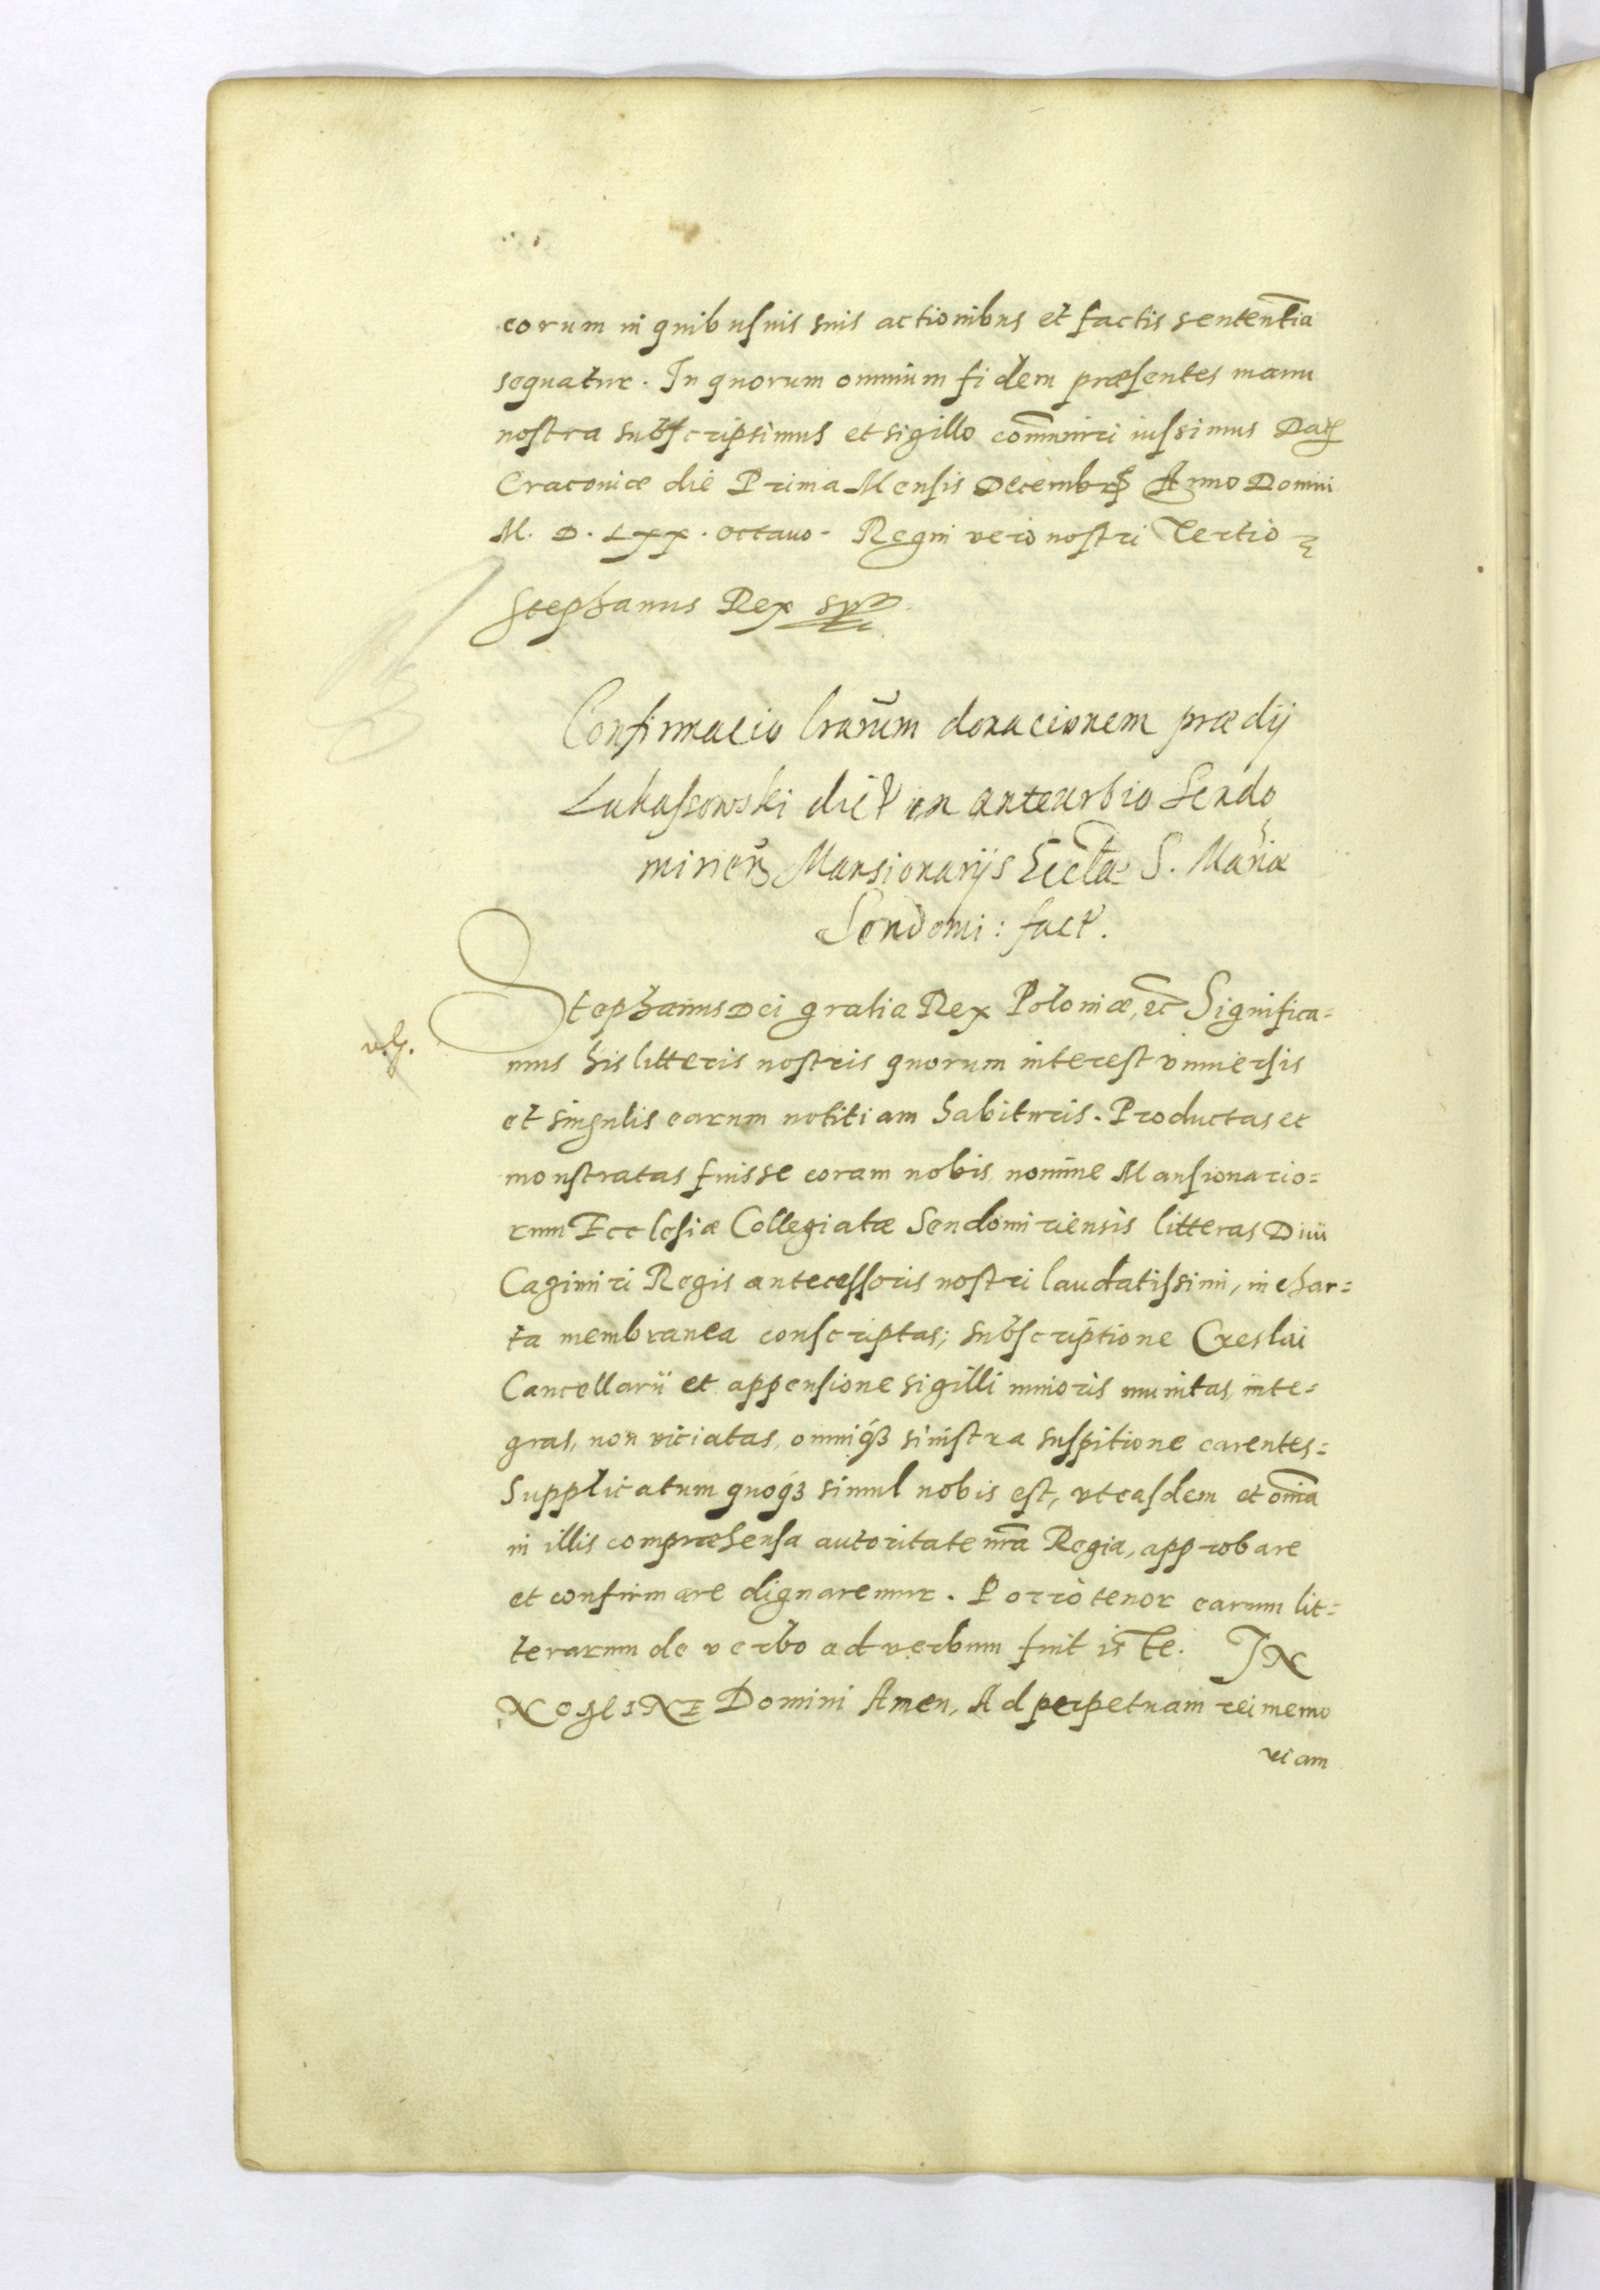 eorum in quibusuis suis actionibus et factis sentent̄ia
sequatur. In quorum omnium fidem præsentes manu
nostra subscripsimus et sigillo com̄uniri iussimus Dat
Cracouiæ die Prima Mensis Decembris Anno Domini
M. D. LXX. octauo. Regni vero nostri Tertio
Stephanus Rex sspt
Confirmacio lrarum donacionem prædij
Lukassowski dict in anteurbio Sendo
mirien Mansionarijs Eccl̄æ S. Mariæ
Sendomi: fact.
Stephanus Dei gratia Rex Poloniæ, etc Significa=
mus his litteris nostris quorum interest vniuersis
et singulis earum notitiam habituris. Productas et
monstratas fuisse coram nobis nomine Mansionario=
rum Ecclesiæ Collegiatæ Sendomiriensis litteras Diui
Cazimiri Regis antecessoris nostri laudatissimi, in char=
ta membranea conscriptas; subscriptione Creslai
Cancellarii et appensione sigilli minoris munitas inte=
gras, non viciatas, omniq3 sinistra suspitione carentes=
Supplicatum quoq3 simul nobis est, vt easdem et om̄ia
in illis compræhensa autoritate nr̄a Regia, approbare
et confirmare dignaremur. Porrò tenor earum lit=
terarum de verbo ad verbum fuit iste. IN
NOMINE Domini Amen, Ad perpetuam rei memo
riam